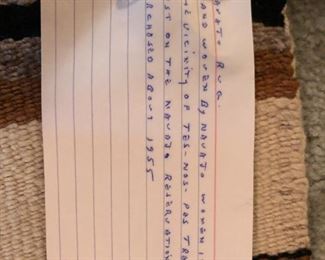 RUG.
AND WOVEN BY NAVAJO WOMEN I
VICINITY OF TES-NOS-PAS TRA
ST ON THE NAVAJO RESERVATION
RCHASED ABOUT 1955